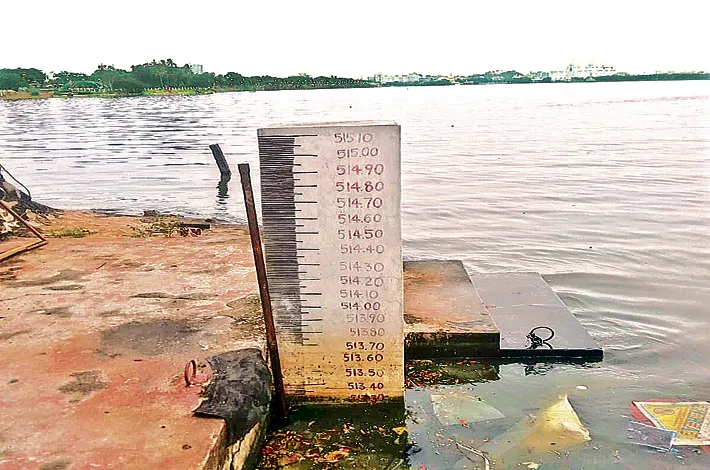 515.10
515.00
514.90
514.80
514.70
514.60
514.50
514.40
514.30
514.20
514.10
514.00
513.90
513.80
513.70
513.60
513.50
513.40
513.30